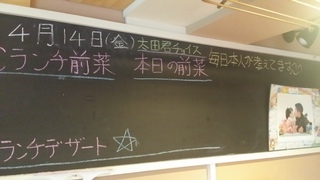 4月14日(金) 太田尻チョイス 毎日日本人が考えてます
Cランチ前菜 本日の前菜
ランチデザート